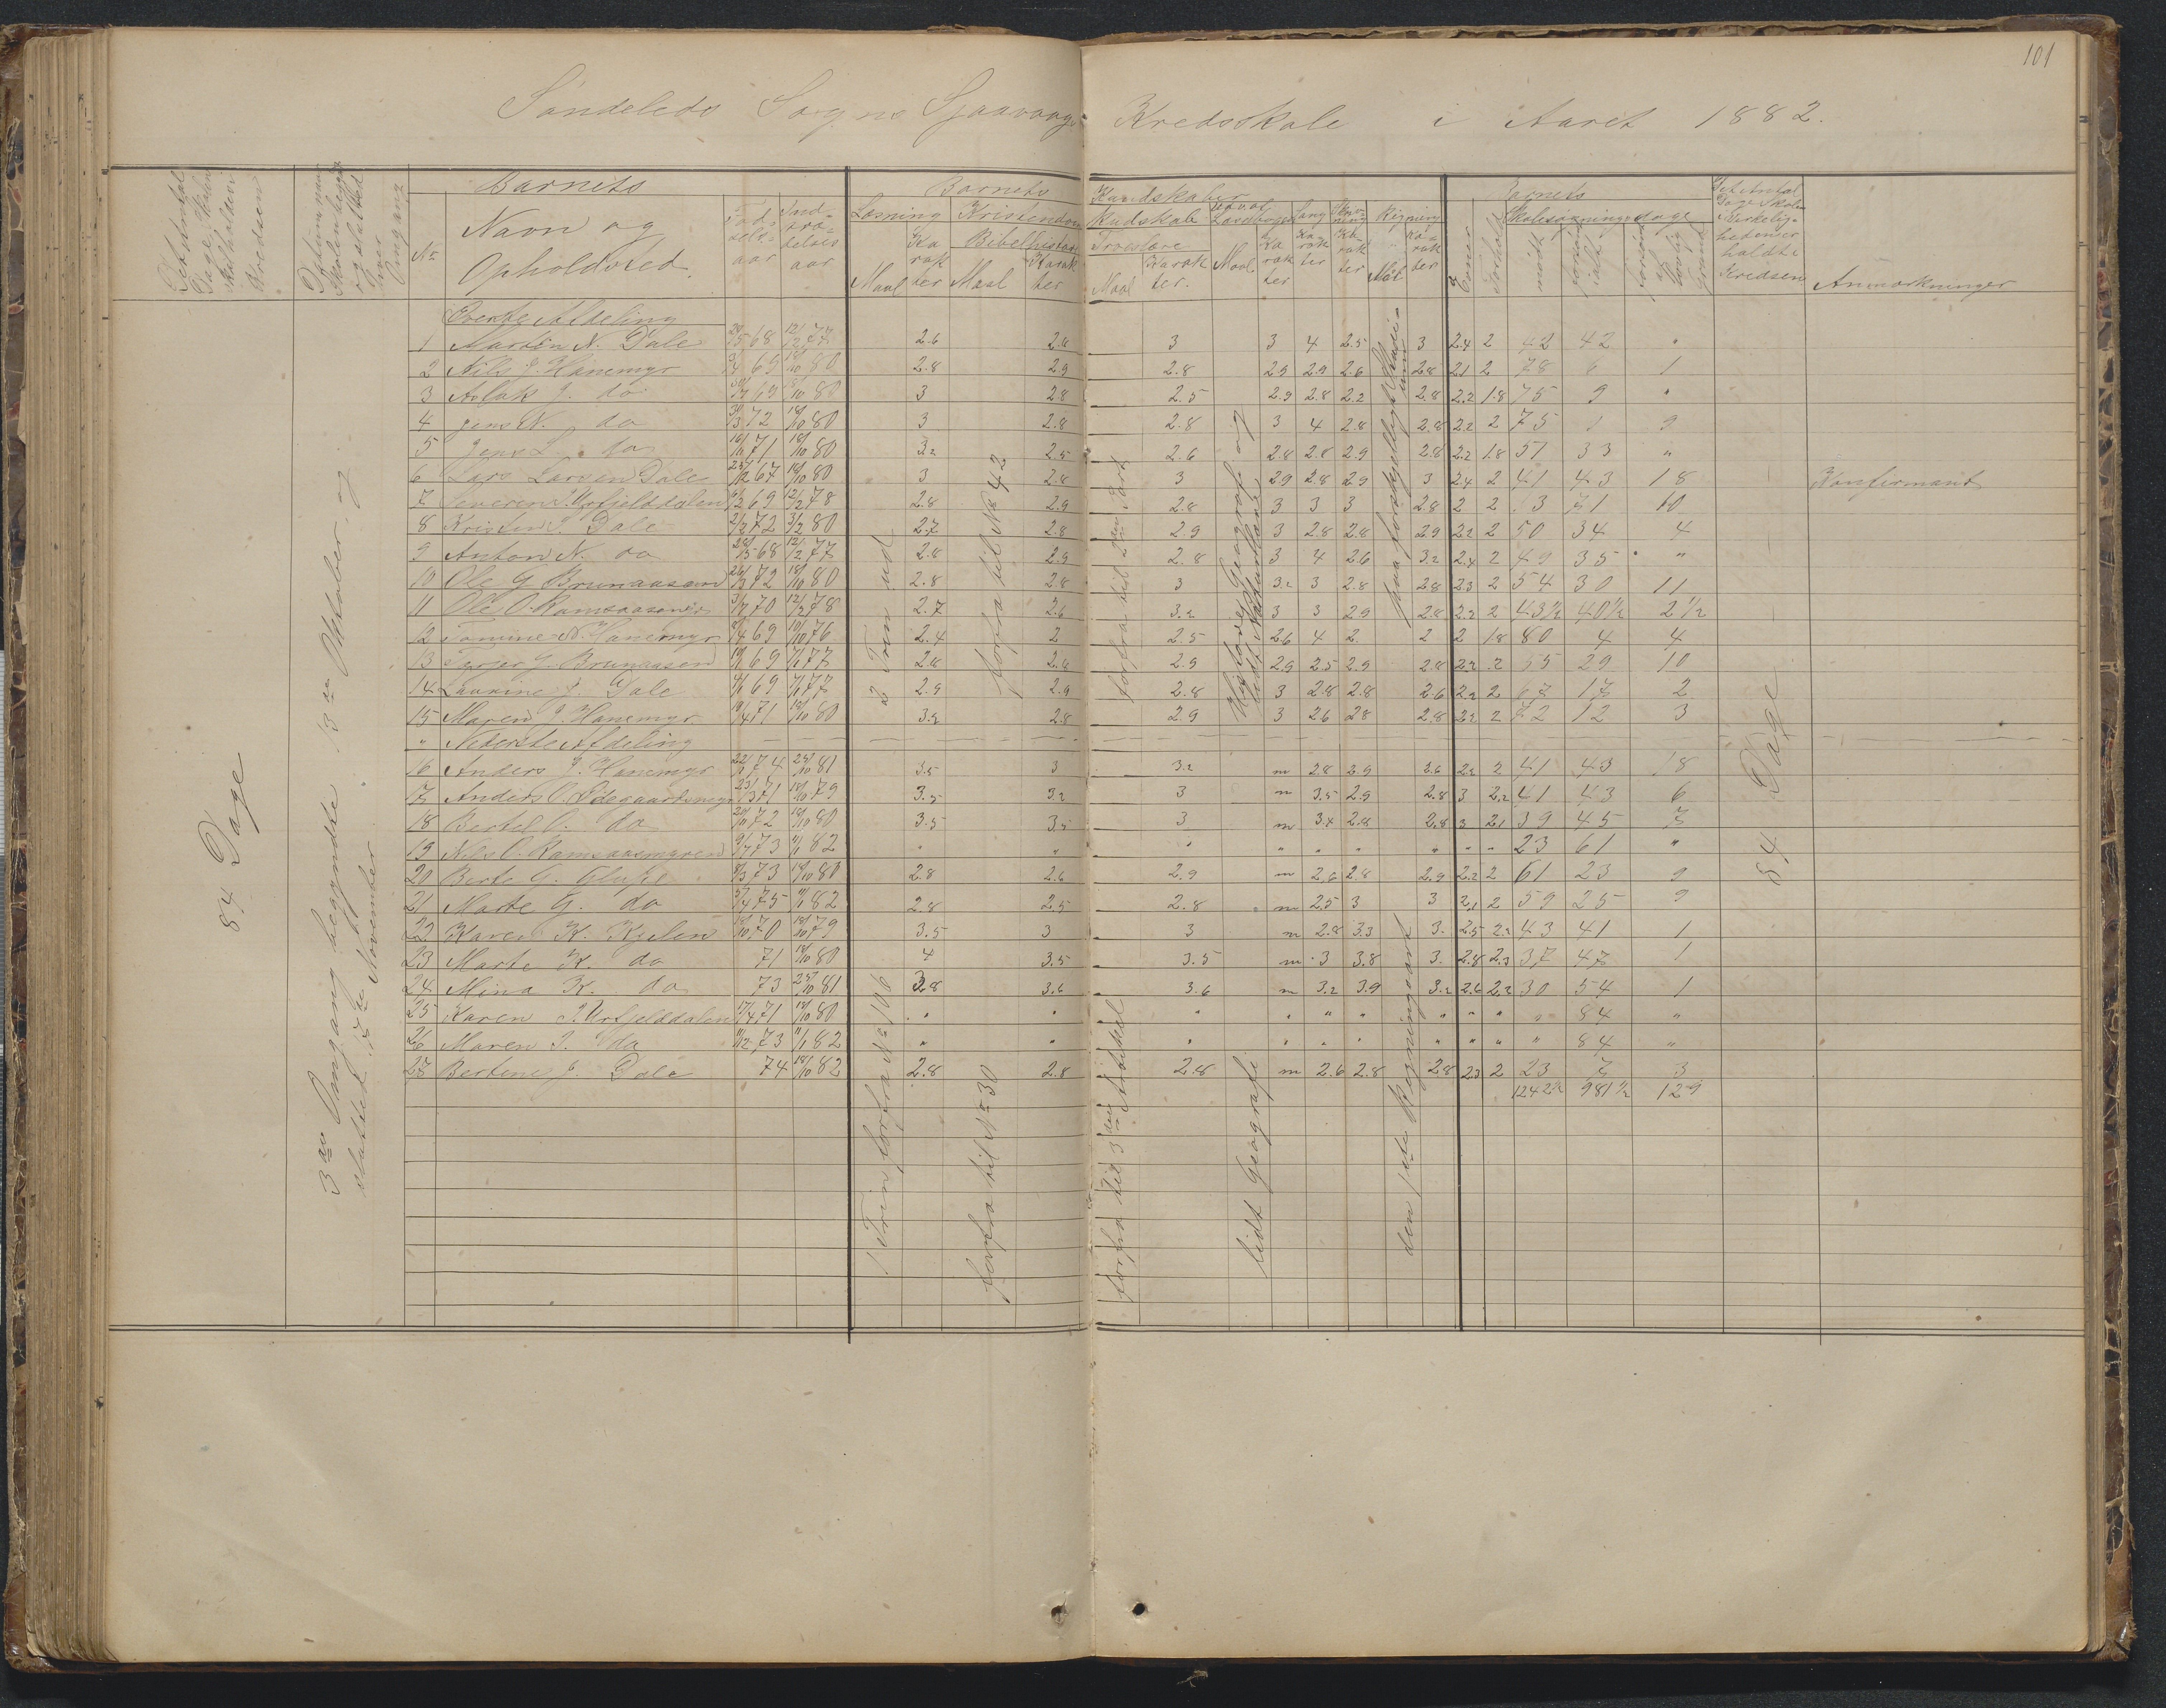 101
Søndeleds Sogns Sjaavaag Kredsskole i Aaret 1882.
Det Antal Dage Skolen skal holdes i Kredsen
Datum naar Skolen begyndte og sluttede hver Omgang
Barnets
No
Navn og Opholdsted.
Fødselsaar
Indtrædelsesaar
Barnets Kundskaber
Læsning
Maal
Karakter
Kristendomskundskab
Bibelhistorie
Maal
Karakter
Troeslære
Maal
Karakter.
Læsebogen
Maal
Karakter
Sang
Karakter
Skrivning
Karakter
Regning
Maal
Karakter
Evner
Forhold
Barnets Skolesøgningsdage
mødt
forsømt ialt
forsømt af lovlig Grund
Det Antal Dage Skolen i Virkeligheden er holdt i Kredsen
Anmærkninger
84 Dage
3die Omgang begyndte 13de Oktober og sluttet 7de November
Øverste Afdeling
1 Martin N. Dale 68 12/2 77 2.6 2.8 3 3 4 2.5 3 2.4 2 42 42 "
2 Nils J. Hanemyr 69 18/10 80 2.8 2.9 2.8 2.9 2.9 2.6 2.8 2.1 2 78 6 1
3 Aslak J. do 69 18/10 80 3 2.8 2.5 2.9 2.8 2.2 2.8 2.2 1.8 75 9 "
4 Jens N. do 72 18/10 80 3 2.8 2.8 3 4 2.8 2.8 2.2 2 75 9
5 Jens L. do 71 18/10 80 3.2 2.5 2.6 2.8 2.8 2.9 2.8 2.2 1.8 51 33 "
6 Lars Larsen Dale 67 18/10 80 3 2.8 3 2.9 2.8 2.9 3 2.4 2 41 43 18 Konfirmant
7 Severen J. Urfjelddalen 69 12/2 78 2.8 2.9 2.8 3 3 3 2.8 2 2 13 71 10
8 Kristen J. Dale 72 3/2 80 2.7 2.8 2.9 3 2.8 2.8 2.9 2.2 2 50 34 4
9 Anton N. do 68 12/2 77 2.8 2.9 2.8 3 4 2.6 3.2 2.4 2 49 35 "
10 Ole G Brunaasen 72 18/10 80 2.8 2.8 3 3.2 3 2.8 2.8 2.3 2 54 30 11
11 Ole O. Ramsaasmyr 70 12/2 78 2.7 2.6 3.2 3 3 2.9 2.8 2.2 2 43½ 40½ 2½
12 Tomine N. Hanemyr 69 10/10 76 2.4 2 2.5 2.6 4 2 2 2 1.8 80 4 4
13 Tarjer G. Brunaasen 69 7/1 77 2.8 2.8 2.9 2.9 2.5 2.9 2.8 2.2 2 55 29 10
14 Laurine J. Dale 69 7/1 77 2.9 2.9 2.8 3 2.8 2.8 2.6 2.2 2 67 17 2
15 Maren J. Hanemyr 71 18/10 80 3.2 2.8 2.9 3 2.6 2.8 2.8 2.2 2 72 12 3
" Nederste Afdeling
16 Anders J. Hanemyr 74 25/10 81 3.5 3 3.2 m 2.8 2.9 2.6 2.2 2 41 43 18
17 Anders O. Ødegaardsmyr 71 18/10 79 3.5 3.2 3 m 3.5 2.9 2.8 3 2.2 41 43 6
18 Bertel O. do 72 18/10 80 3.5 3.5 3 m 3.4 2.8 2.8 3 2.1 39 45 7
19 Nils O. Ramsaasmyren 73 11/1 82 " " " " " " " " " 23 61 "
20 Berte G. Glupe 73 18/10 80 2.8 2.6 2.9 m 2.6 2.8 2.9 2.2 2 61 23 9
21 Marte G. do 75 11/1 82 2.8 2.5 2.8 m 2.5 3 3 2.1 2 59 25 9
22 Karen K. Kielen 70 18/10 79 3.5 3 3 m 2.8 3.3 3. 2.5 2.2 43 41 1
23 Marte K. do 71 18/10 80 4 3.5 3.5 m 3 3.8 3. 2.8 2.3 37 47 1
24 Mina K. do 73 25/10 81 3.8 3.6 3.6 m 3.2 3.9 3.2 2.6 2.2 30 54 1
25 Karen J. Urfjelddalen 71 18/10 80 " " " " " " " " " " 84 "
26 Maren J. do 73 11/1 82 " " " " " " " " " " 84 "
27 Bertine J. Dale 74 18/10 82 2.8 2.8 2.8 m 2.6 2.8 2.8 2.3 2 23 7 3
1242½ 981½ 129
2 Trin ud
forfra til No 42
forfra til 2den Part
Historie, Geografi og lidt Naturlære
paa forskjellige Stadier
84 Dage
1 Trin forfra No 106
forfra til No 30
forfra til 3die Artikel
lidt Geografi
den 1ste Regningsart